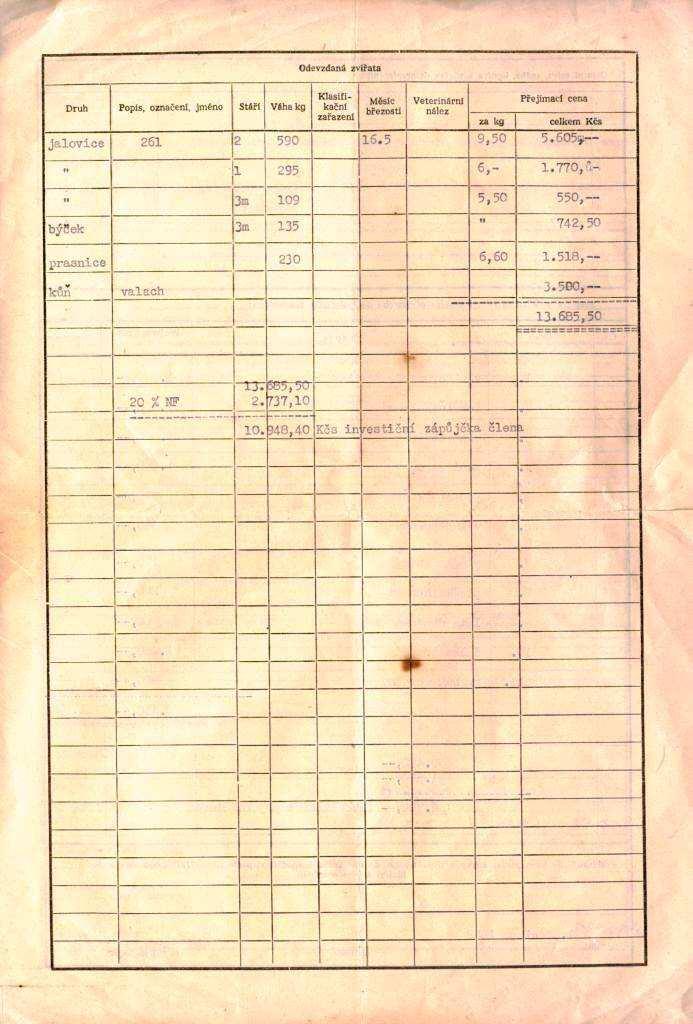 Odevzdaná zvířata
Druh Popis, označení, jméno Stáří Váha kg Klasifi-kační zařazení Měsíc březosti Veterinární nález Přejímací cena
za kg celkem Kčs
jalovice 261 2 590 16.5 9,50 5.605,--
" 1 295 6,- 1.770,--
" 3m 109 5,50 550,--
býček 3m 135 " 742,50
prasnice 230 6,60 1.518,--
kůň valach 3.500,--
13.685,50
13.685,50
20 % NF 2.737,10
10.948,40 Kčs investiční zápůjčka člena